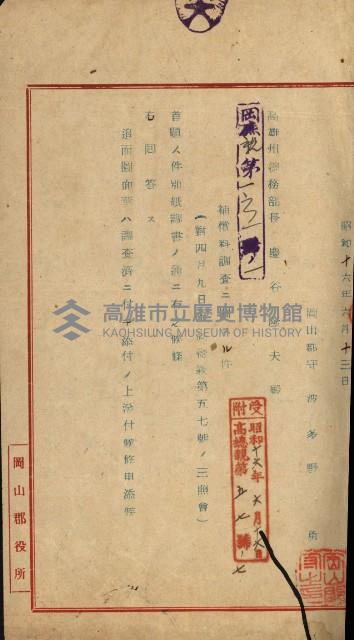 昭和十六年六月十三日
岡山郡守 波多野 勇
高雄州總務部長 慶谷隆夫殿
岡庶祕第一
補償料調査ニ ル件
(對四月九日 第五七號ノ三照會)
首題ノ件別紙調書ノ通ニ有之候條
右回答ス
追而圖面 ハ調査濟ニ付 添付ノ上送付候條申添候
受附
昭和十六年六月十六日
高總親第五七號ノ七
岡山郡役所
高雄市立歷史博物館
KAOHSIUNG MUSEUM OF HISTORY